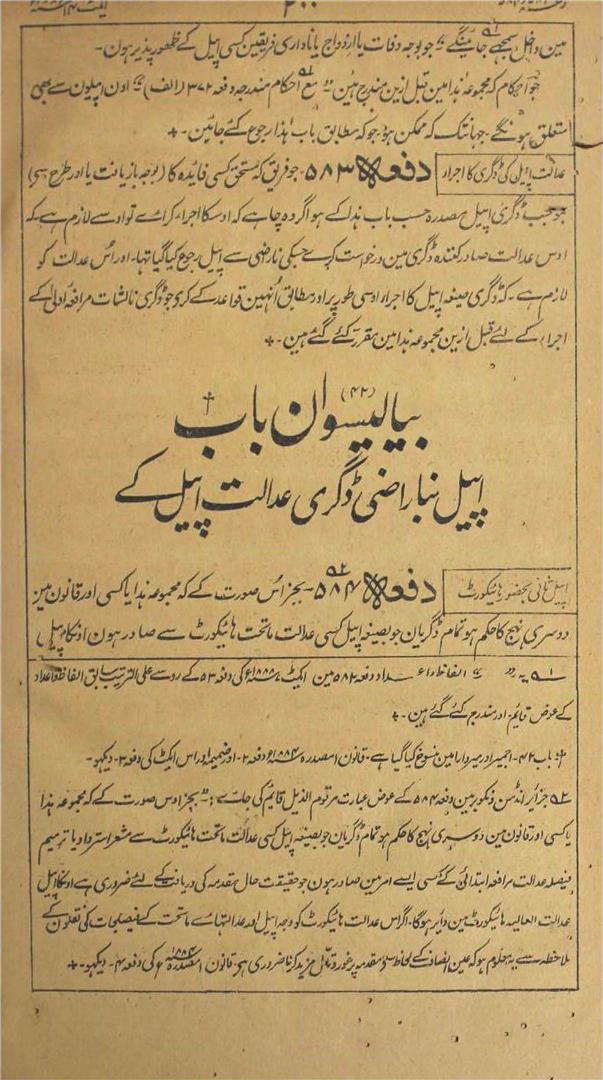 ۳۰۰
مین داخل سمجھے جائینگے جو بوجہ وفات یا ازدواج یا ناداری فریقین کسی اپیل کے ظہور پذیر ہون۔
جو احکام کہ مجموعہ ہذا مین قبل ازین مندرج ہین مع احکام مندرجہ دفعہ ۳۷۲ (الف) اون اپیلون سے بھی
متعلق ہونگے۔ جہانتک کہ ممکن ہو جو کہ مطابق باب ہذا رجوع کئے جائین۔ +
عدالت اپیل کی ڈگری کا اجرار
دفعہ ۵۸۳۔ جو فریق کہ مستحق کسی فائدہ کا (بوجہ بازیافت یا اور طرح سے)
بموجب ڈگری اپیل مصدرہ حسب باب ہذا کے ہو اگر وہ چاہے کہ اوسکا اجراء کرائے تو اوسے لازم ہے کہ
اوس عدالت صادر کنندہ ڈگری مین درخواست کرے جسکی ناراضی سے اپیل رجوع کیا گیا تھا۔ اور اُس عدالت کو
لازم ہے۔ کہ ڈگری صیغہ اپیل کا اجرار اوسی طور پر اور مطابق اُنہین قواعد کے کرے جو ڈگری نالشات مرافعہ اولیٰ کے
اجراء کے لئے قبل ازین مجموعہ ہذا مین مقرر کئے گئے ہین۔ +
بیالیسوان (۴۲) باب †
اپیل بناراضی ڈگری عدالت اپیل کے
اپیل ثانی بحضور ہائیکورٹ
دفعہ ۵۸۴ ۹۲۔ بجز اُس صورت کے کہ مجموعہ ہذا یا کسی اور قانون مین
دوسری نہج کا حکم ہو تمام ڈگریان جو بصیغہ اپیل کسی عدالت ماتحت ہائیکورٹ سے صادر ہون اونکا اپیل
۹۱ الفاظ دفعہ ۵۸۲ مین ایکٹ ۱۸۸۸ء کی دفعہ ۵۳ کے رو سے علی الترتیب سابق الفاظ و اعداد
کے عوض قائم۔ اور مندرج کئے گئے ہین۔ +
† باب ۴۲۔ اجمیر اور میروارا مین منسوخ کیا گیا ہے۔ قانون ا مصدرہ ۱۸۸۴ء دفعہ ۲۔ اور ضمیمہ اور اس ایکٹ کی دفعہ ۳۔ دیکھو۔
۹۲ جزائر انڈمن و نکوبر مین دفعہ ۵۸۴ کے عوض عبارت مرقوم الذیل قائم کی جائے: "بجز اوس صورت کے کہ مجموعہ ہذا
یا کسی اور قانون مین دوسری نہج کا حکم ہو تمام ڈگریان جو بصیغہ اپیل کسی عدالت ماتحت ہائیکورٹ سے مشعر استرداد یا ترمیم
فیصلہ عدالت مرافعہ ابتدائی کے کسی ایسے امر مین صادر ہون جو حقیقت حال مقدمہ کی دریافت کے لئے ضروری ہے اونکا اپیل
عدالت العالیہ ہائیکورٹ مین دائر ہوگا۔ اگر اس عدالت ہائیکورٹ کو وجہ اپیل اور عدالتہائے ماتحت کے فیصلجات کی نقلون کے
ملاحظہ سے یہ معلوم ہو کہ عین انصاف کے لحاظ سے مقدمہ پر غور و تامل مزید کرنا ضروری ہے۔ قانون ا مصدرہ ۱۸۸۴ء کی دفعہ ۴۔ دیکھو۔ +